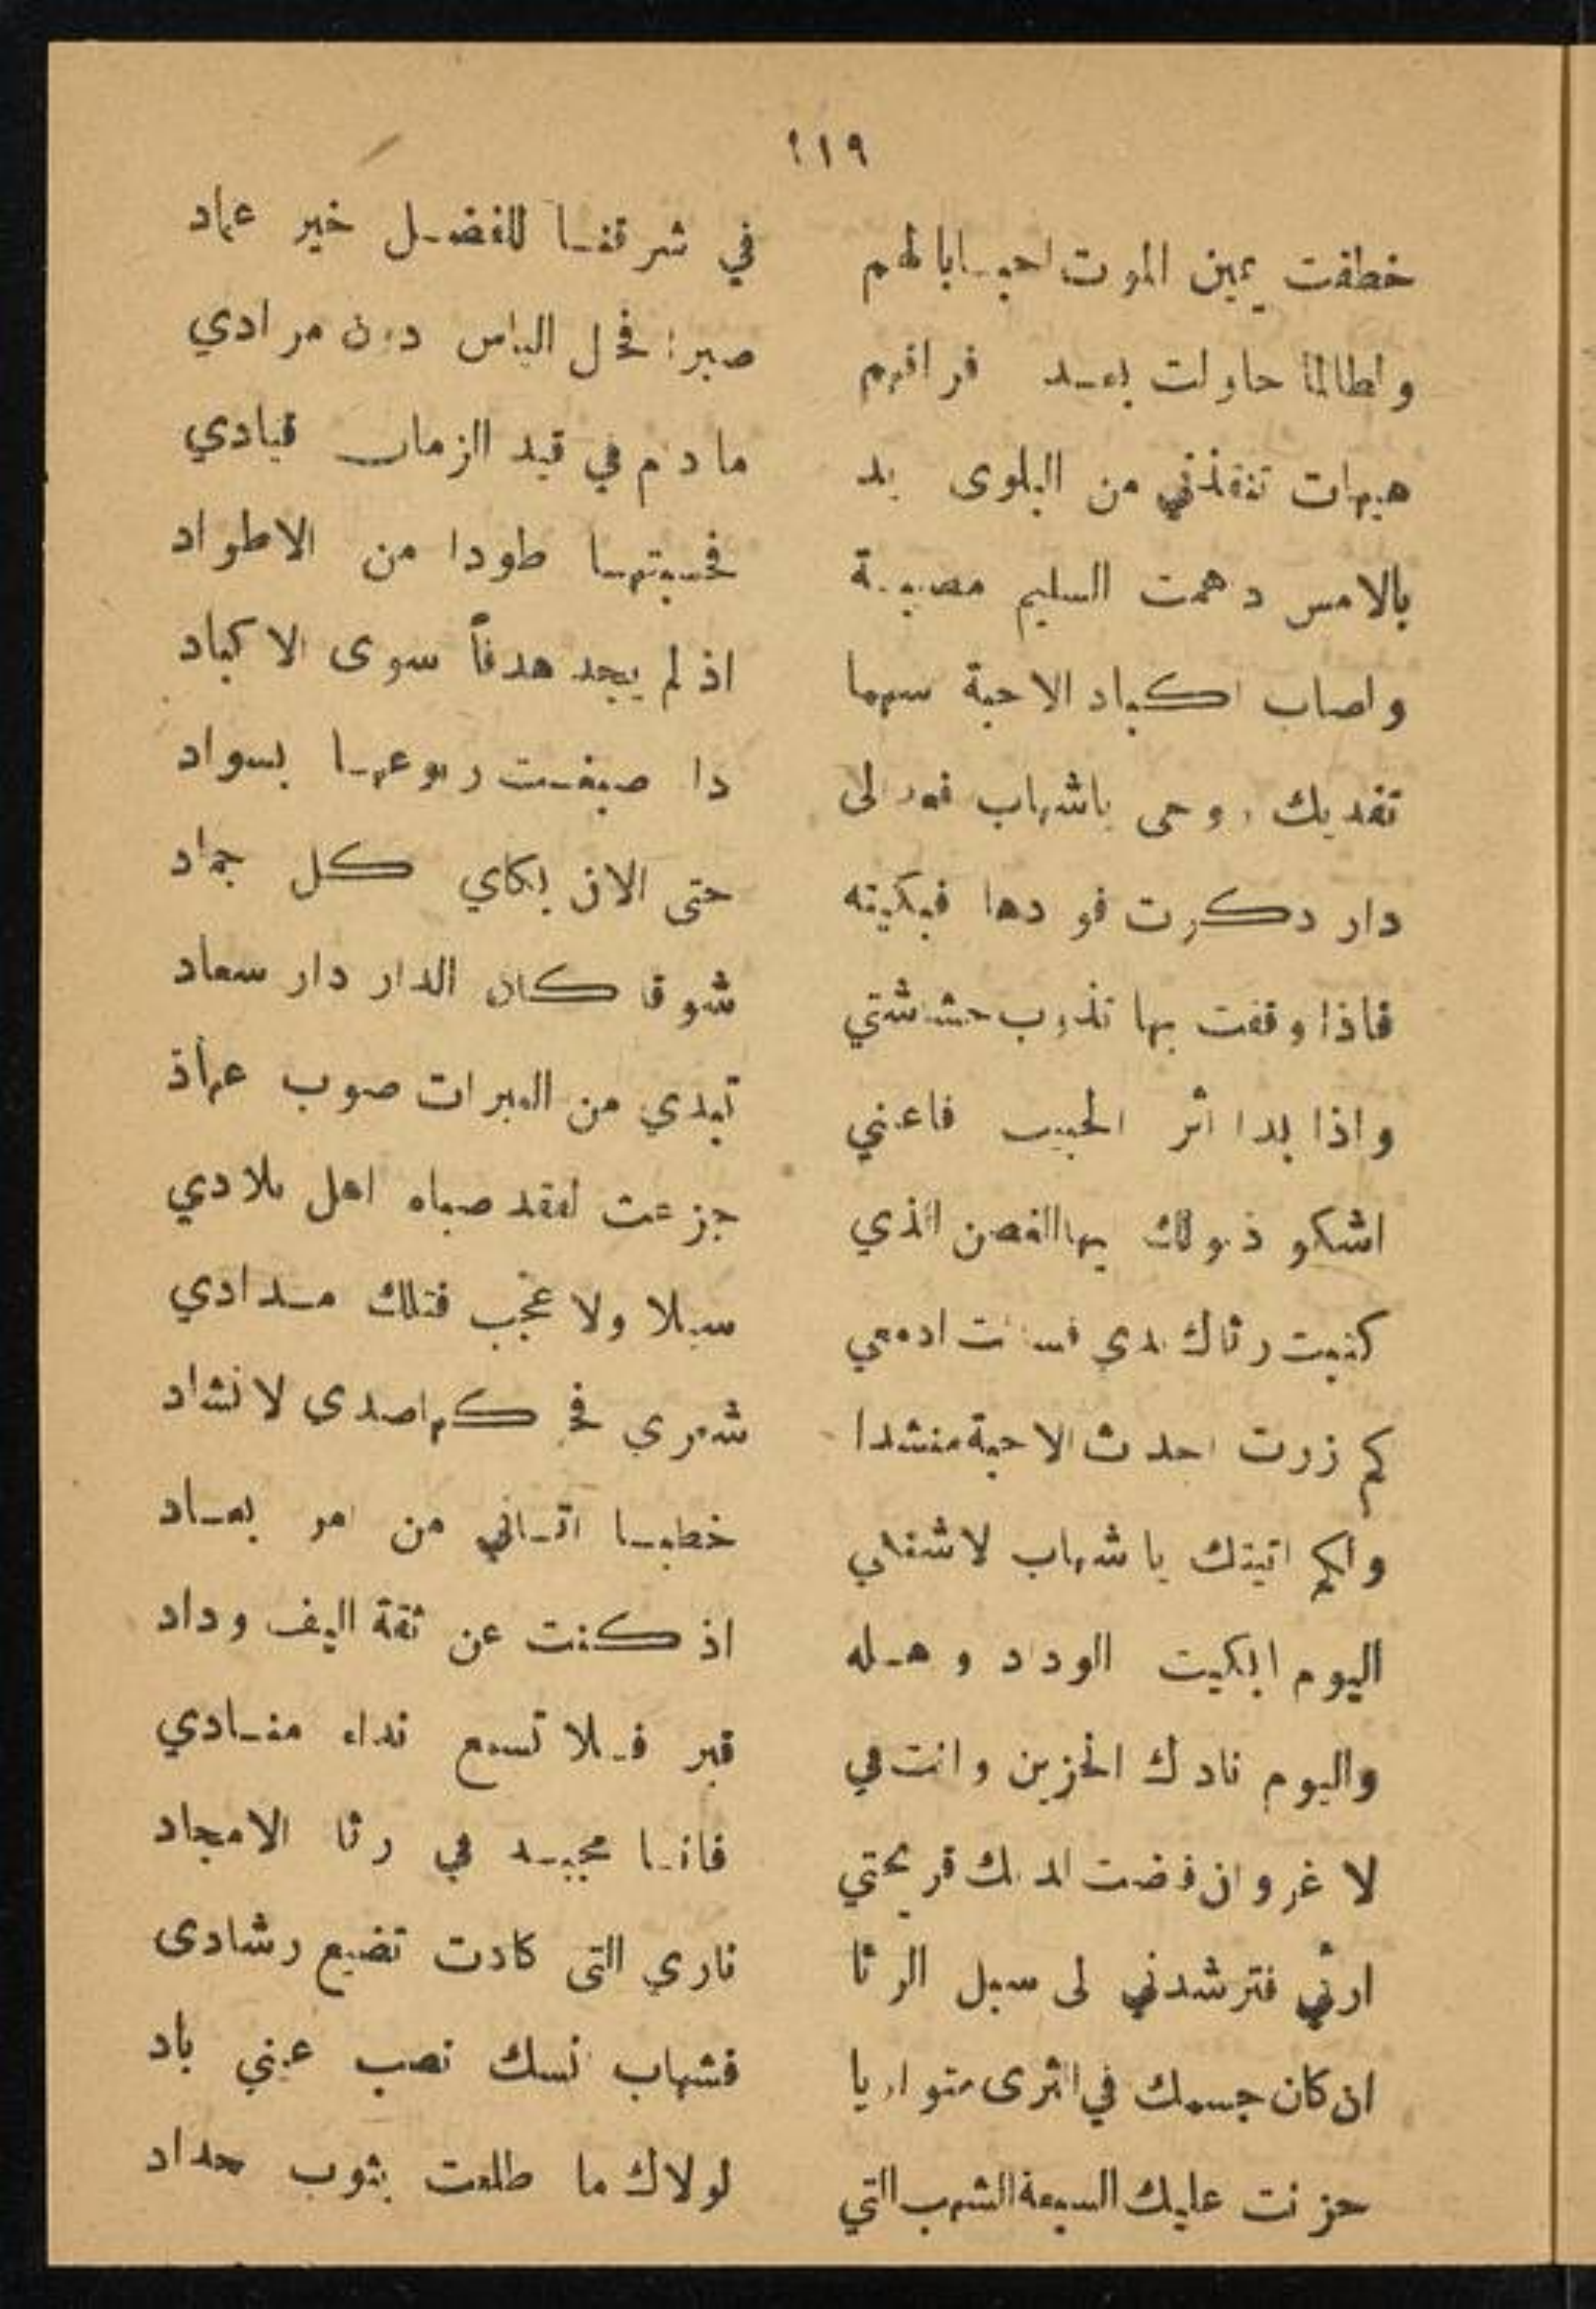 ١١٩
خطفت يمين الموت احبابا لهم في شرقنا للفضل خير عماد
ولطالما حاولت بعد فراقهم صبرا فحل الياس دون مرادي
هيهات تنقذني من البلوى يد ما دام في قيد الزمان قيادي
بالامس دهمت السليم مصيبة فحسبتها طودا من الاطواد
واصاب اكباد الاحبة سهما اذ لم يجد هدفاً سوى الاكباد
تفديك روحي ياشهاب دا صبغت ربوعها بسواد
دار ذكرت فبكيته حتى الان بكاي كل جماد
فاذا وقفت بها تذوب حشاشتي شوقا كان الدار دار سعاد
واذا بدا اثر الحبيب فاعيني تبدي من العبرات صوب عهاد
اشكو ذبولك يهاالغصن الذي جزعت لفقد صباه اهل بلادي
كتبت رثاك ادمعي سيلا ولا عجب فتلك مدادي
كم زرت اجدث الاحبة منشدا شعري صدى لانشاد
ولكم اتيتك يا شهاب لاشتفي خطبا اتاني من امر بعاد
اليوم ابكيت الوداد وهله اذ كنت عن ثقة اليف وداد
واليوم نادك الحزين وانت في قبر فلا تسمع نداء منادي
لا غروان فضت لديك قريحتي فانا مجيد في رثا الامجاد
ارثي فترشدني لى سبل الرثا ناري التى كادت تضيع رشادى
ان كان جسمك في الثرى متواريا فشهاب نسك نصب عيني باد
حزنت عليك السبعة الشهب التي لولاك ما طلعت بثوب حداد